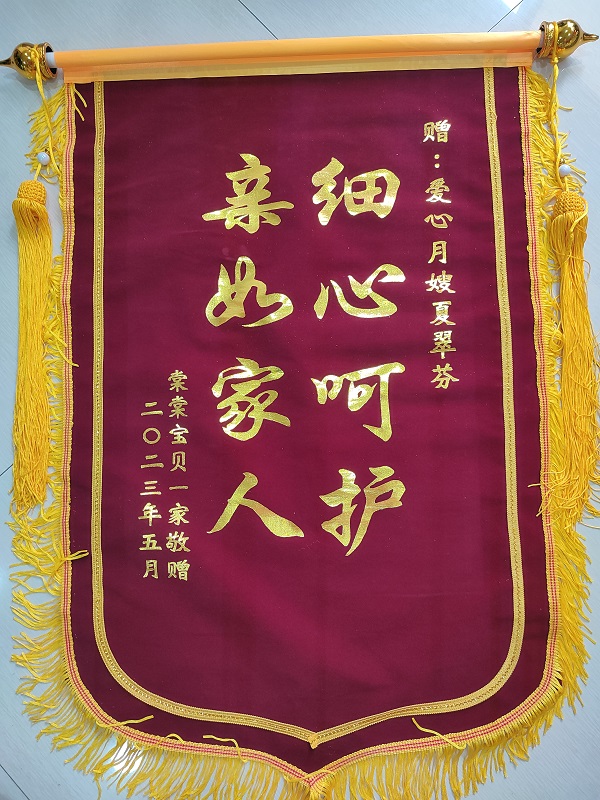 赠：爱心月嫂夏翠芬
细心呵护
亲如家人
棠棠宝贝一家敬赠
二〇二三年五月